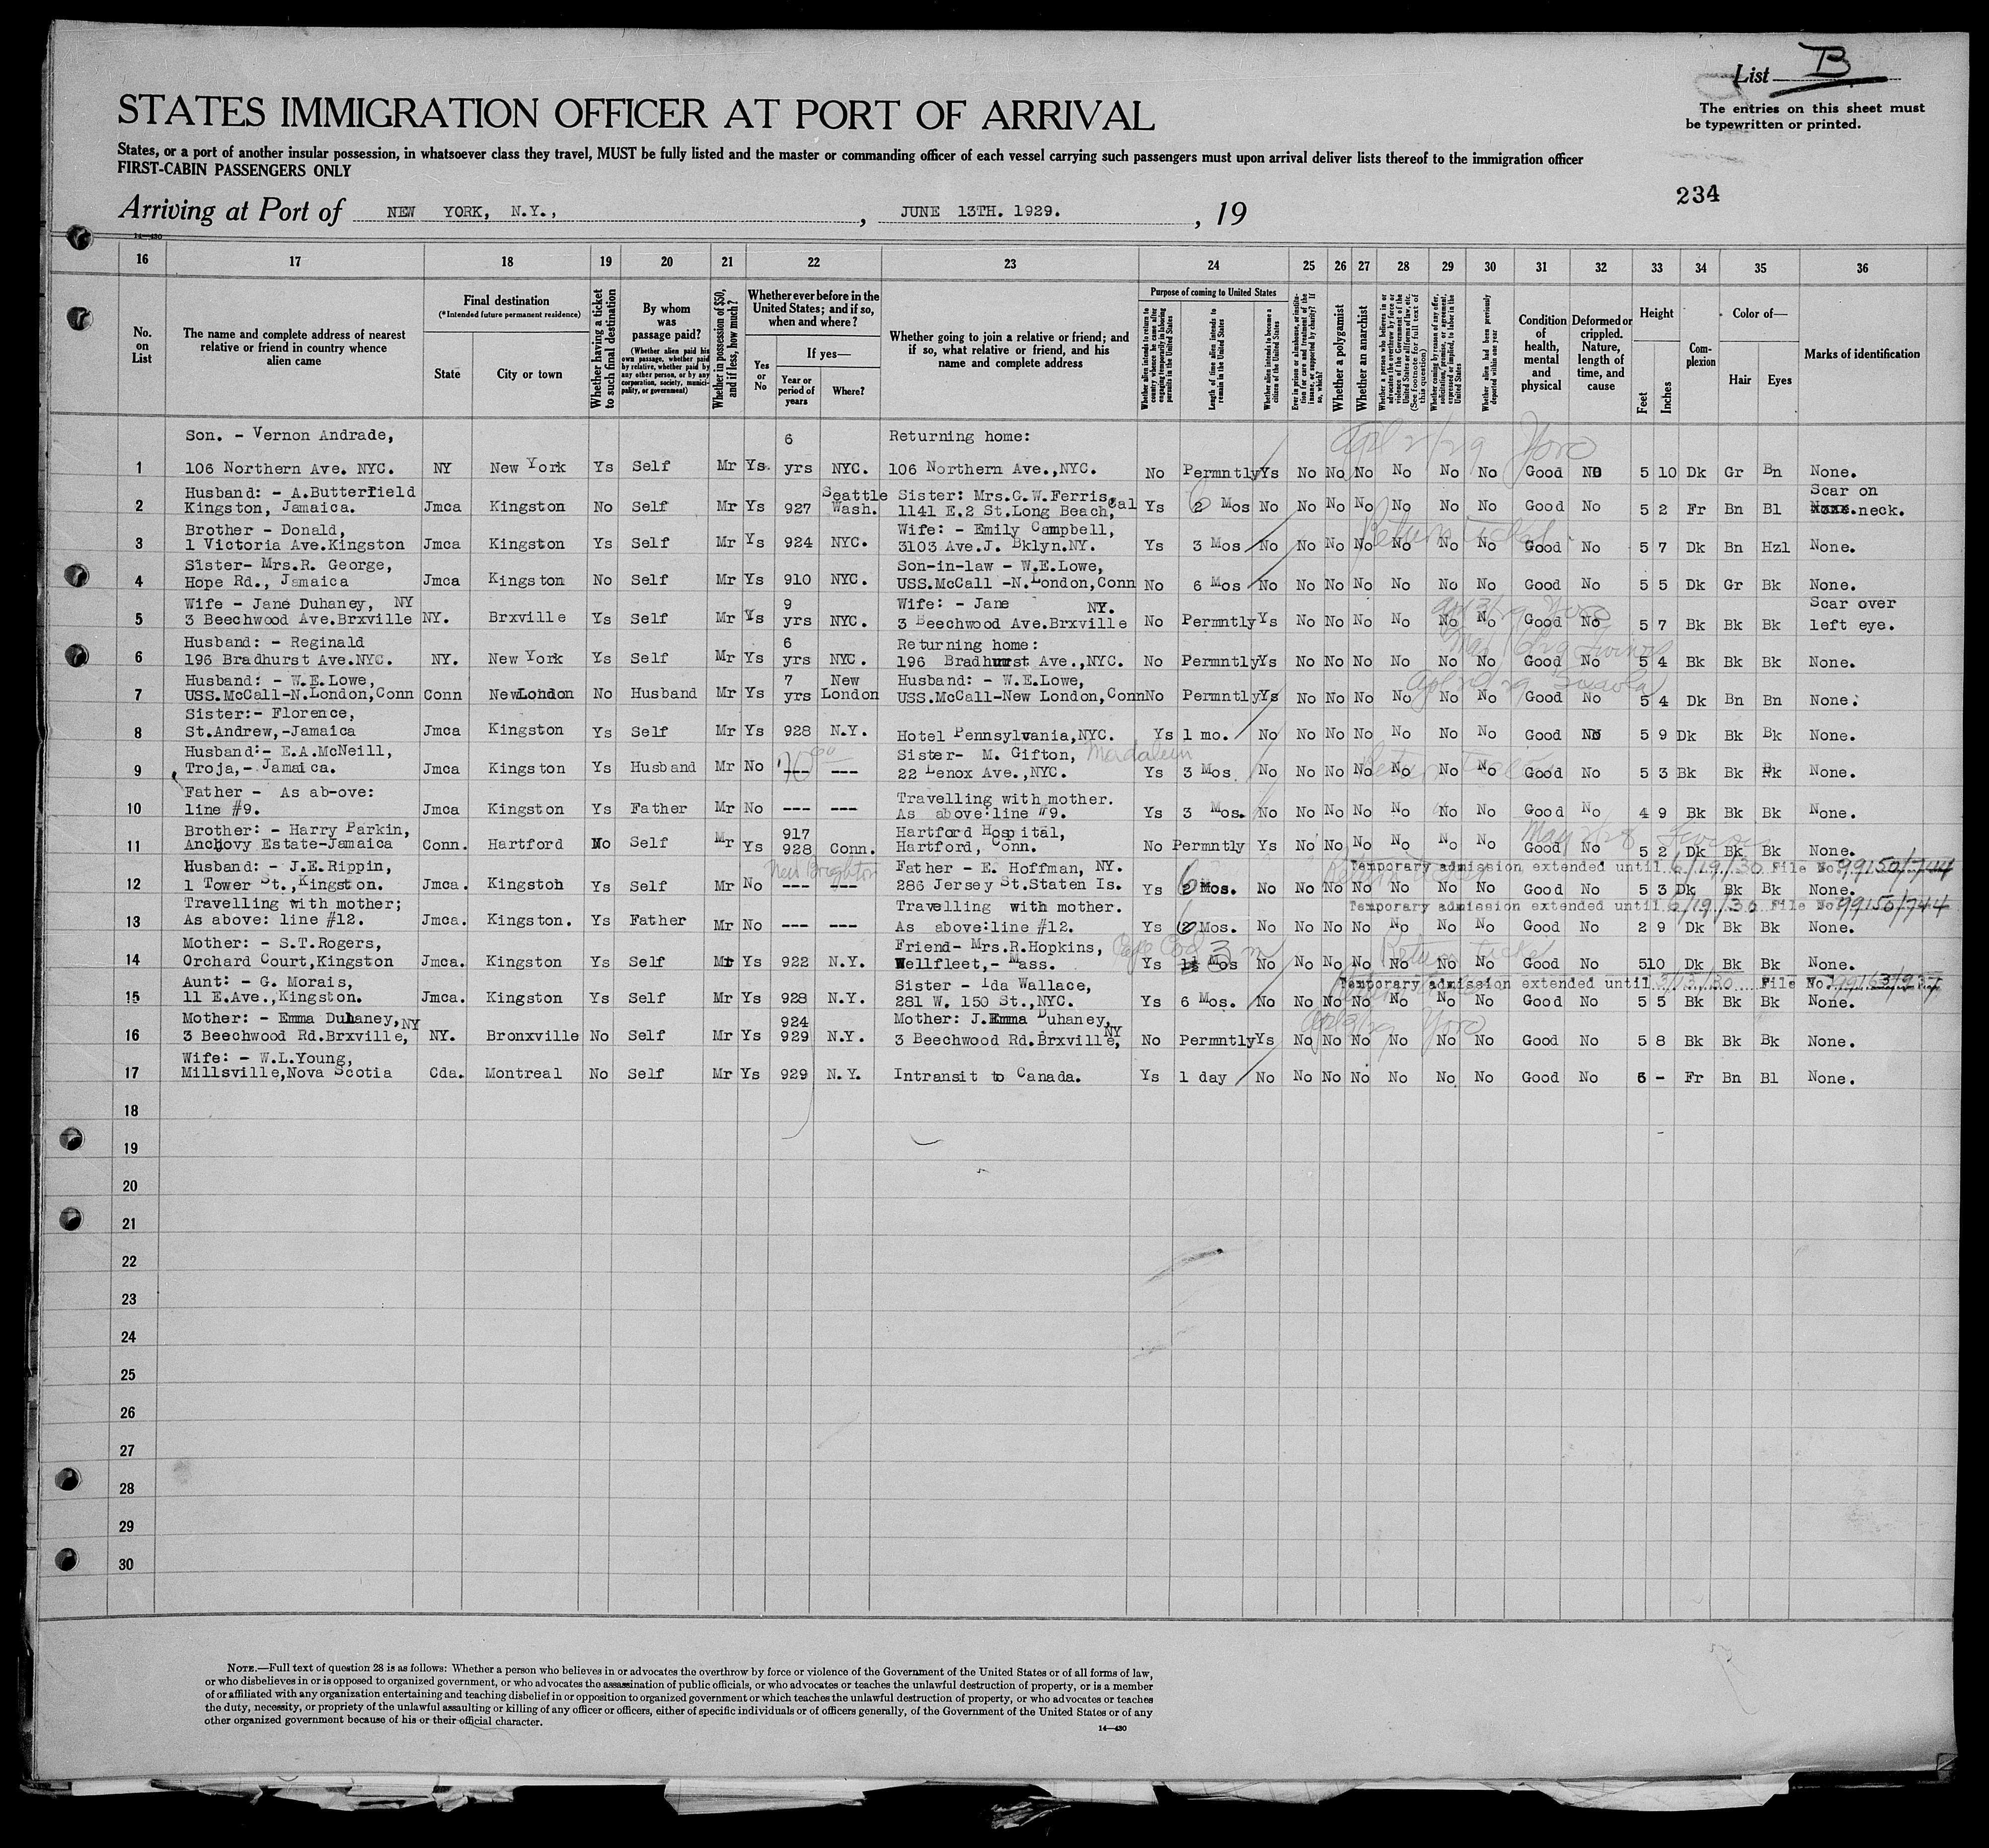 List B
The entries on this sheet must
be typewritten or printed.
STATES IMMIGRATION OFFICER AT PORT OF ARRIVAL
States, or a port of another insular possession, in whatsoever class they travel, MUST be fully listed and the master or commanding officer of each vessel carrying such passengers must upon arrival deliver lists thereof to the immigration officer
FIRST-CABIN PASSENGERS ONLY
234
Arriving at Port of NEW YORK, N.Y., , JUNE 13TH. 1929. , 19
14—430
16 17 18 19 20 21 22 23 24 25 26 27 28 29 30 31 32 33 34 35 36
No. on List
The name and complete address of nearest relative or friend in country whence alien came
Final destination
(*Intended future permanent residence)
State
City or town
Whether having a ticket to such final destination
By whom was passage paid?
(Whether alien paid his own passage, whether paid by relative, whether paid by any other person, or by any corporation, society, municipality, or government)
Whether in possession of $50, and if less, how much?
Whether ever before in the United States; and if so, when and where?
Yes or No
If yes—
Year or period of years
Where?
Whether going to join a relative or friend; and if so, what relative or friend, and his name and complete address
Purpose of coming to United States
Whether alien intends to return to country whence he came after engaging temporarily in laboring pursuits in the United States
Length of time alien intends to remain in the United States
Whether alien intends to become a citizen of the United States
Whether a polygamist
Whether an anarchist
Whether alien had been previously deported within one year
Condition of health, mental and physical
Deformed or crippled. Nature, length of time, and cause
Height
Feet
Inches
Complexion
Color of—
Hair
Eyes
Marks of identification
Son. - Vernon Andrade, 6 Returning home:
1 106 Northern Ave. NYC. NY New York Ys Self Mr Ys. yrs NYC. 106 Northern Ave.,NYC. No Permntly Ys No No No No No No Good NO 5 10 Dk Gr Bn None.
Husband: - A.Butterfield Seattle Sister: Mrs.G.W.Ferris, Scar on
2 Kingston, Jamaica. Jmca Kingston No Self Mr Ys 927 Wash. 1141 E.2 St.Long Beach, Cal Ys 2 Mos No No No No No No No Good No 5 2 Fr Bn Bl neck.
Brother - Donald, Wife: - Emily Campbell,
3 1 Victoria Ave.Kingston Jmca Kingston Ys Self Mr Ys 924 NYC. 3103 Ave.J. Bklyn.NY. Ys 3 Mos No No No No No No No Good No 5 7 Dk Bn Hzl None.
Sister- Mrs.R. George, Son-in-law - W.E.Lowe,
4 Hope Rd., Jamaica Jmca Kingston No Self Mr Ys 910 NYC. USS.McCall -N.London,Conn No 6 Mos No No No No No No No Good No 5 5 Dk Gr Bk None.
Wife - Jane Duhaney, NY 9 Wife: - Jane NY. Scar over
5 3 Beechwood Ave.Brxville NY. Brxville Ys Self Mr Ys yrs NYC. 3 Beechwood Ave.Brxville No Permntly Ys No No No No No No Good No 5 7 Bk Bk Bk left eye.
Husband: - Reginald 6 Returning home:
6 196 Bradhurst Ave.NYC. NY. New York Ys Self Mr Ys yrs NYC. 196 Bradhurst Ave.,NYC. No Permntly Ys No No No No No No Good No 5 4 Bk Bk Bk None.
Husband: - W.E.Lowe, 7 New Husband: - W.E.Lowe,
7 USS.McCall-N.London,Conn Conn NewLondon No Husband Mr Ys yrs London USS.McCall-New London,Conn No Permntly Ys No No No No No No Good No 5 4 Dk Bn Bn None.
Sister:- Florence,
8 St.Andrew,-Jamaica Jmca Kingston Ys Self Mr Ys 928 N.Y. Hotel Pennsylvania,NYC. Ys 1 mo. No No No No No No No Good No 5 9 Dk Bk Bk None.
Husband:- E.A.McNeill, Sister- M. Gifton, Madalein
9 Troja,- Jamaica. Jmca Kingston Ys Husband Mr No --- --- 22 Lenox Ave.,NYC. Ys 3 Mos. No No No No No No No Good No 5 3 Bk Bk Bk None.
Father - As ab-ove: Travelling with mother.
10 line #9. Jmca Kingston Ys Father Mr No --- --- As above:line #9. Ys 3 Mos. No No No No No No No Good No 4 9 Bk Bk Bk None.
Brother: - Harry Parkin, 917 Hartford Hospital,
11 Anchovy Estate-Jamaica Conn. Hartford No Self Mr Ys 928 Conn. Hartford, Conn. No Permntly Ys No No No No No No Good No 5 2 Dk Bk Bk None.
Husband: - J.E.Rippin, New Brighton Father - E. Hoffman, NY. Temporary admission extended until 6/19/30 File No. 99150/744
12 1 Tower St.,Kingston. Jmca. Kingston Ys Self Mr No --- --- 286 Jersey St.Staten Is. Ys 6 2 Mos. No No No No No No No Good No 5 3 Dk Bk Bk None.
Travelling with mother; Travelling with mother. Temporary admission extended until 6/19/30 File No. 99150/744
13 As above: line #12. Jmca. Kingston. Ys Father Mr No --- --- As above:line #12. Ys 6 2 Mos. No No No No No No No Good No 2 9 Dk Bk Bk None.
Mother: - S.T.Rogers, Friend- Mrs.R.Hopkins, Cape Cod 3 m Return ticket
14 Orchard Court,Kingston Jmca. Kingston Ys Self Mr Ys 922 N.Y. Wellfleet,- Mass. Ys 1½ Mos No No No No No No No Good No 510 Dk Bk Bk None.
Aunt: - G. Morais, Sister - Ida Wallace, Temporary admission extended until File No.
15 11 E.Ave.,Kingston. Jmca. Kingston Ys Self Mr Ys 928 N.Y. 281 W. 150 St.,NYC. Ys 6 Mos. No No No No No No No Good No 5 5 Bk Bk Bk None.
Mother: - Emma Duhaney, NY 924 Mother: J.Emma Duhaney, NY
16 3 Beechwood Rd.Brxville, NY. Bronxville No Self Mr Ys 929 N.Y. 3 Beechwood Rd.Brxville, No Permntly Ys No No No No No No Good No 5 8 Bk Bk Bk None.
Wife: - W.L.Young,
17 Millsville,Nova Scotia Cda. Montreal No Self Mr Ys 929 N.Y. Intransit to Canada. Ys 1 day No No No No No No No Good No 5 - Fr Bn Bl None.
18
19
20
21
22
23
24
25
26
27
28
29
30
NOTE.—Full text of question 28 is as follows: Whether a person who believes in or advocates the overthrow by force or violence of the Government of the United States or of all forms of law,
or who disbelieves in or is opposed to organized government, or who advocates the assassination of public officials, or who advocates or teaches the unlawful destruction of property, or is a member
of or affiliated with any organization entertaining and teaching disbelief in or opposition to organized government or which teaches the unlawful destruction of property, or who advocates or teaches
the duty, necessity, or propriety of the unlawful assaulting or killing of any officer or officers, either of specific individuals or of officers generally, of the Government of the United States or of any
other organized government because of his or their official character.
14—430